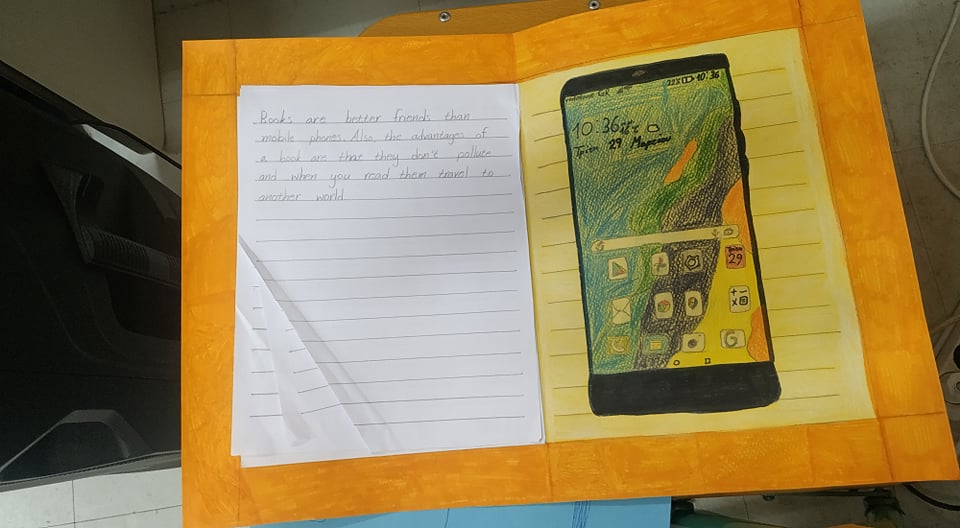 Books are better friends than
mobile phones. Also, the advantages of
a book are that they don't pollute
and when you read them travel to
another world
GR
22% 10:36
10:36
Τρίτη 29 Μαρτίου
Τρίτη
29
+ -
x
G